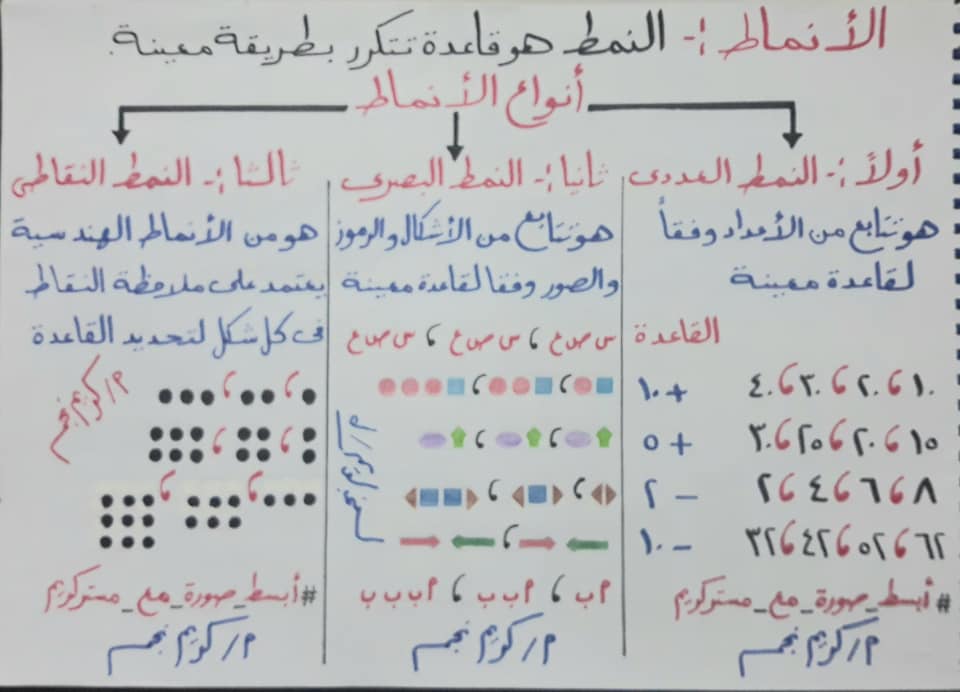 الأنماط :- النمط هو قاعدة تتكرر بطريقة معينة.
أنواع الأنماط
أولاً :- النمط العددى
هو تتابع من الأعداد وفقاً
لقاعدة معينة
القاعدة
١٠ ، ٢٠ ، ٣٠ ، ٤٠ + ١٠
١٥ ، ٢٠ ، ٢٥ ، ٣٠ + ٥
٨ ، ٦ ، ٤ ، ٢ - ٢
٦٢ ، ٥٢ ، ٤٢ ، ٣٢ - ١٠
#أبسط_صورة_مع_مستركريم
م/ كريم نجم
ثانيا :- النمط البصرى
هو تتابع من الأشكال والرموز
والصور وفقا لقاعدة معينة
س ص ع ، س ص ع ، س ص ع
م ب ، م ب ب ، م ب ب ب
م/ كريم نجم
ثالثا :- النمط النقاطى
هو من الأنماط الهندسية
يعتمد على ملاحظة النقاط
فى كل شكل لتحديد القاعدة
م/ كريم نجم
#أبسط_صورة_مع_مستركريم
م/ كريم نجم